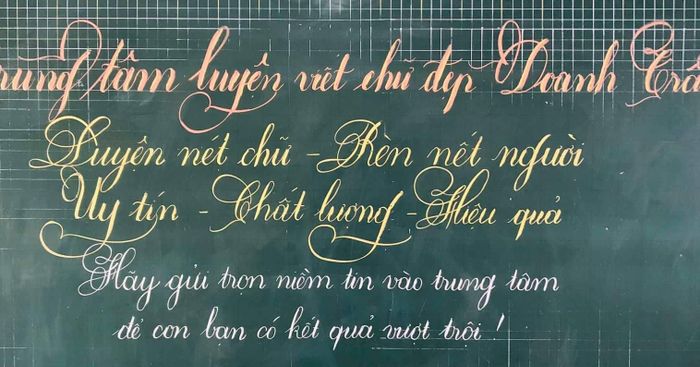 rung tâm luyện viết chữ đẹp Doanh Trà
Luyện nét chữ - Rèn nết người
Uy tín - Chất lượng - Hiệu quả
Hãy gửi trọn niềm tin vào trung tâm
để con bạn có kết quả vượt trội !